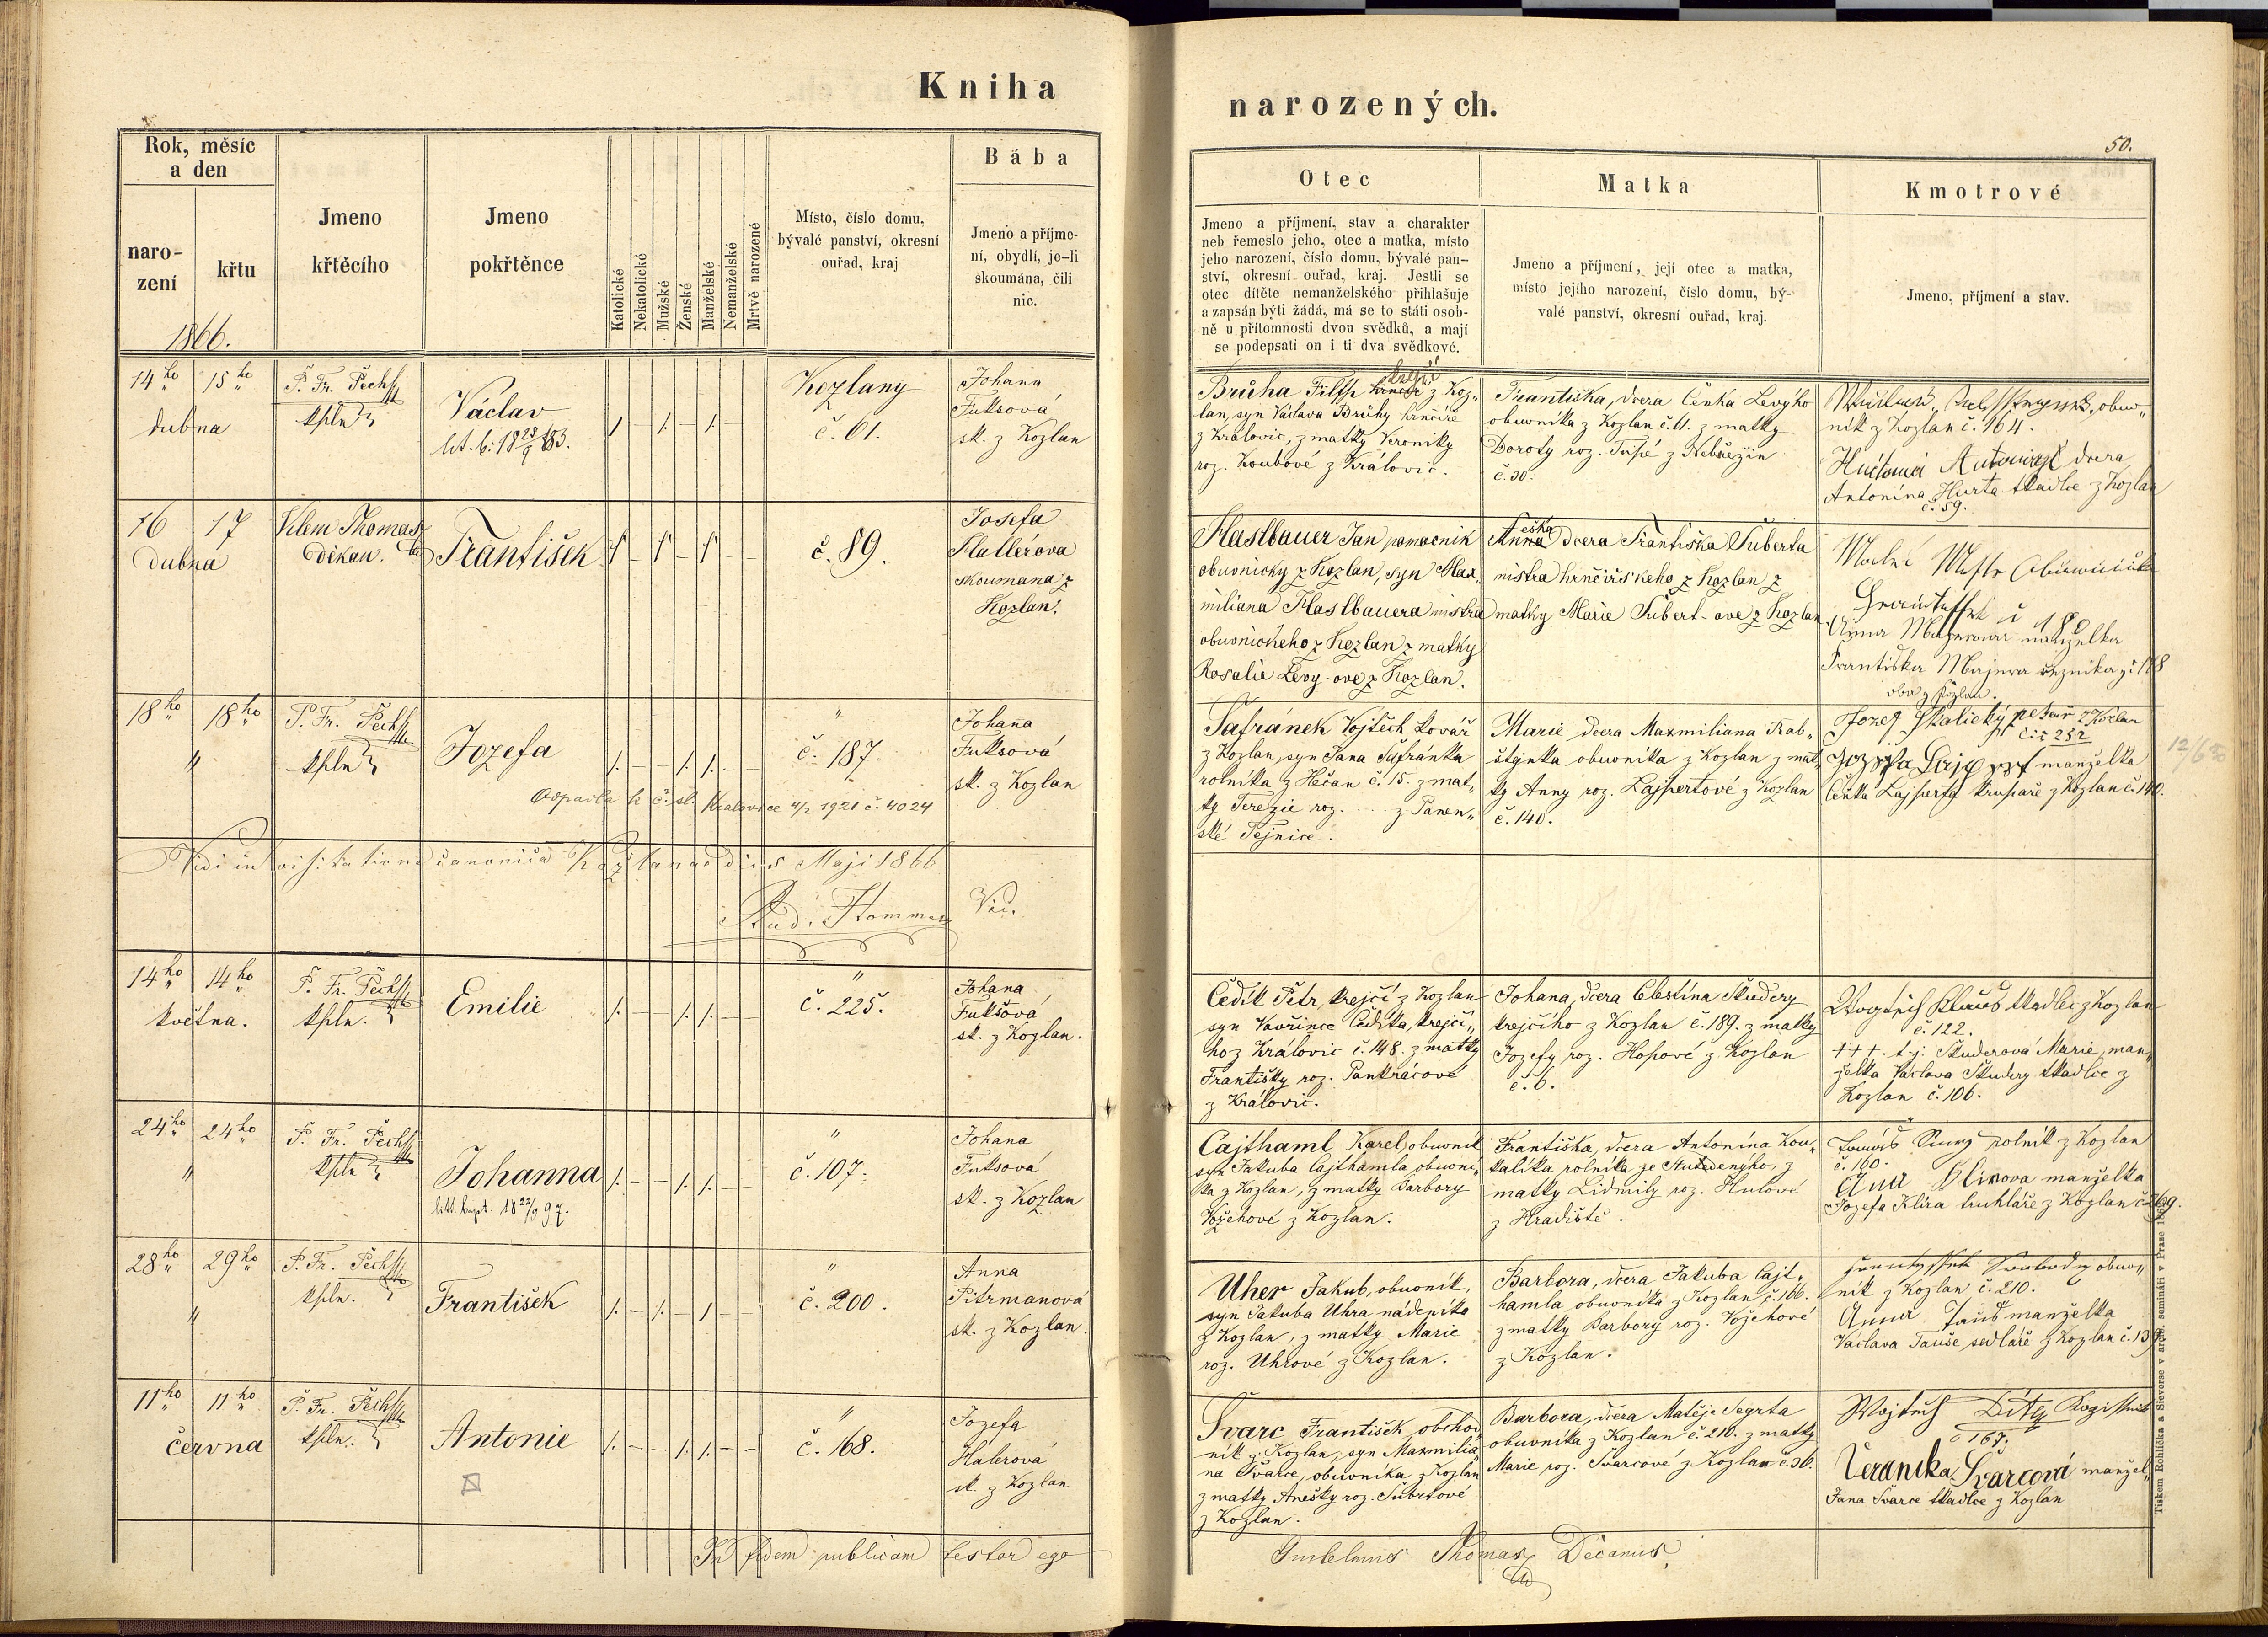 Kniha
narozených.
50.
Rok, měsíc
a den
naro-
zení
křtu
1866.
Jmeno
křtěcího
Jmeno
pokřtěnce
Katolické
Nekatolické
Mužské
Ženské
Manželské
Nemanželské
Mrtvě narozené
Místo, číslo domu,
bývalé panství, okresní
ouřad, kraj
Bába
Jmeno a příjme-
ní, obydlí, je-li
skoumána, čili
nic.
Otec
Jmeno a příjmení, stav a charakter
neb řemeslo jeho, otec a matka, místo
jeho narození, číslo domu, bývalé pan-
ství, okresní ouřad, kraj. Jestli se
otec dítěte nemanželského přihlašuje
a zapsán býti žádá, má se to státi osob-
ně u přítomnosti dvou svědků, a mají
se podepsati on i ti dva svědkové.
Matka
Jmeno a příjmení, její otec a matka,
místo jejího narození, číslo domu, bý-
valé panství, okresní ouřad, kraj.
Kmotrové
Jmeno, příjmení a stav.
14ho 15ho
dubna
P. Fr. Pech
kpln
Václav
Kozlany
č. 61.
Johana
Fuksová
sk. z Kozlan
krejčí
Brůha Filip z Koz„
lan, syn Václava Brůhy hrnčíře
z Královic, z matky Veroniky
roz. Koubové z Královic.
Františka, dcera Čenka Levýho
obuvníka z Kozlan č. 61. z matky
Doroty roz. Tupé z Nebřezin
č. 30.
obuv„
ník z Kozlan č. 164.
dcera
Antonína Hurta tkadlce z Kozlan
č. 59.
16 17
dubna
Vilem Thomas
děkan.
František
č. 89.
Josefa
Hallerova
skoumana z
Kozlan.
Haslbauer Jan pomocnik
obuvnicky z Kozlan, syn Max„
miliana Haslbauera mistra
obuvnickeho z Kozlan z matky
Rosalie Levy-ove z Kozlan.
Anna dcera Františka Šuberta
mistra hrnčířskeho z Kozlan z
matky Marie Šubert-ove z Kozlan.
Anna Majerova manželka
Františka Majera řezníka č 188
oba z Kozlan.
18ho 18ho
"
P. Fr. Pech
kpln
Jozefa
"
č. 187
Odpadla k č. sl. Kralovice 4/2 1921 č. 4024
Johana
Fuksová
sk. z Kozlan
Šafránek Vojtěch kovář
z Kozlan, syn Jana Šafránka
rolníka z Hečan č. 15. z mat„
ky Terezie roz. ... z Panen„
ské Tejnice.
Marie dcera Maxmiliana Rab„
štýnka obuvníka z Kozlan z mat„
ky Anny roz. Lajpertové z Kozlan
č. 140.
Jozef Skalický pekař z Kozlan
č: 252
manželka
Čenka Lajperta krupaře z Kozlan č. 140.
Vidi in visitatione canonica Kozlanae die Maji 1866
Vic.
14ho 14ho
května.
P. Fr. Pech
kpln.
Emilie
"
č. 225.
Johana
Fuksová
sk. z Kozlan.
Čedik Petr, krejčí z Kozlan
syn Vavřince Čedíka, krejčí„
ho z Královic č. 148. z matky
Františky roz. Pankrácové
z Královic.
Johana, dcera Celestína Škudery
krejčího z Kozlan č. 189. z matky
Jozefy roz. Hofové z Kozlan
č. 6.
tkadlec z Kozlan
č. 122.
+++. t. j. Škuderová Marie, man„
želka Václava Škudery tkadlce z
Kozlan č. 106.
24ho 24ho
"
P. Fr. Pech
kpln
Johanna
"
č. 107.
Johana
Fuksová
sk. z Kozlan
Cajthaml Karel, obuvník
syn Jakuba Cajthamla, obuvní„
ka z Kozlan, z matky Barbory
Vožehové z Kozlan.
Františka, dcera Antonína Kou„
kalíka rolníka ze Studenýho, z
matky Lidmily roz. Hulové
z Hradiště.
rolník z Kozlan
č. 160.
Ana Klirova manželka
Jozefa Klíra truhláře z Kozlan č. 269.
28ho 29ho
"
P. Fr. Pech
kpln.
František
"
č. 200.
Anna
Pitrmanová
sk. z Kozlan.
Uher Jakub, obuvník,
syn Jakuba Uhra nádeníka
z Kozlan, z matky Marie
roz. Uhrové z Kozlan.
Barbora, dcera Jakuba Cajt„
hamla, obuvníka z Kozlan č. 166.
z matky Barbory roz. Vožehové
z Kozlan.
obuv„
ník z Kozlan č. 210.
Anna Tauš manželka
Václava Tauše sedláře z Kozlan č. 139
11ho 11ho
června
P. Fr. Pech
kpln.
Antonie
"
č. 168.
Jozefa
Halerová
sk. z Kozlan
Švarc František, obchod„
ník z Kozlan, syn Maxmilia„
na Švarce, obuvníka z Kozlan
z matky Anešky roz. Šubrtové
z Kozlan.
Barbora, dcera Matěje Segrta
obuvníka z Kozlan č. 210. z matky
Marie roz. Švarcové z Kozlan č. 36.
č 167.
Veronika Švarcová manžel„
Jana Švarce tkadlce z Kozlan
In fidem publicam testor ego
Guilelmus Thomas Decanus
Tiskem Rohlíčka a Sieverse v arcib. semináři v Praze